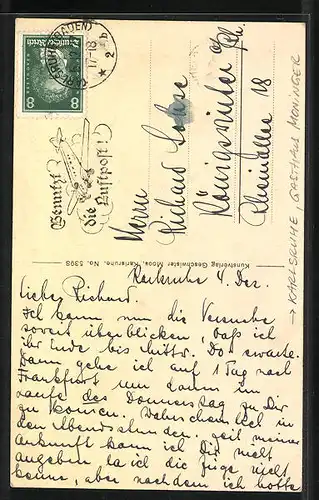 KARLSRUHE (BADEN)
17-18
2 b
Deutsches Reich
8 8
Benützt
die Luftpost!
Herrn
Richard
Königswinter a/Rh.
Rheinallee 18
Kunstverlag Geschwister Moos, Karlsruhe. No. 5393
→ KARLSRUHE GASTHAUS MONINGER
Karlsruhe 4. Dez.
Lieber Richard.
Ich kann nun die Versuche
soweit überblicken, daß ich
ihr Ende bis
dann gehe ich auf 1 Tag nach
Frankfurt um dann im
Laufe des Donnerstag zu Dir
zu kommen. Wahrscheinlich in
den Abendstunden, Zeit meiner
Ankunft kann ich Dir nicht
angeben da ich die Züge nicht
kenne, aber nachdem ich hoffe